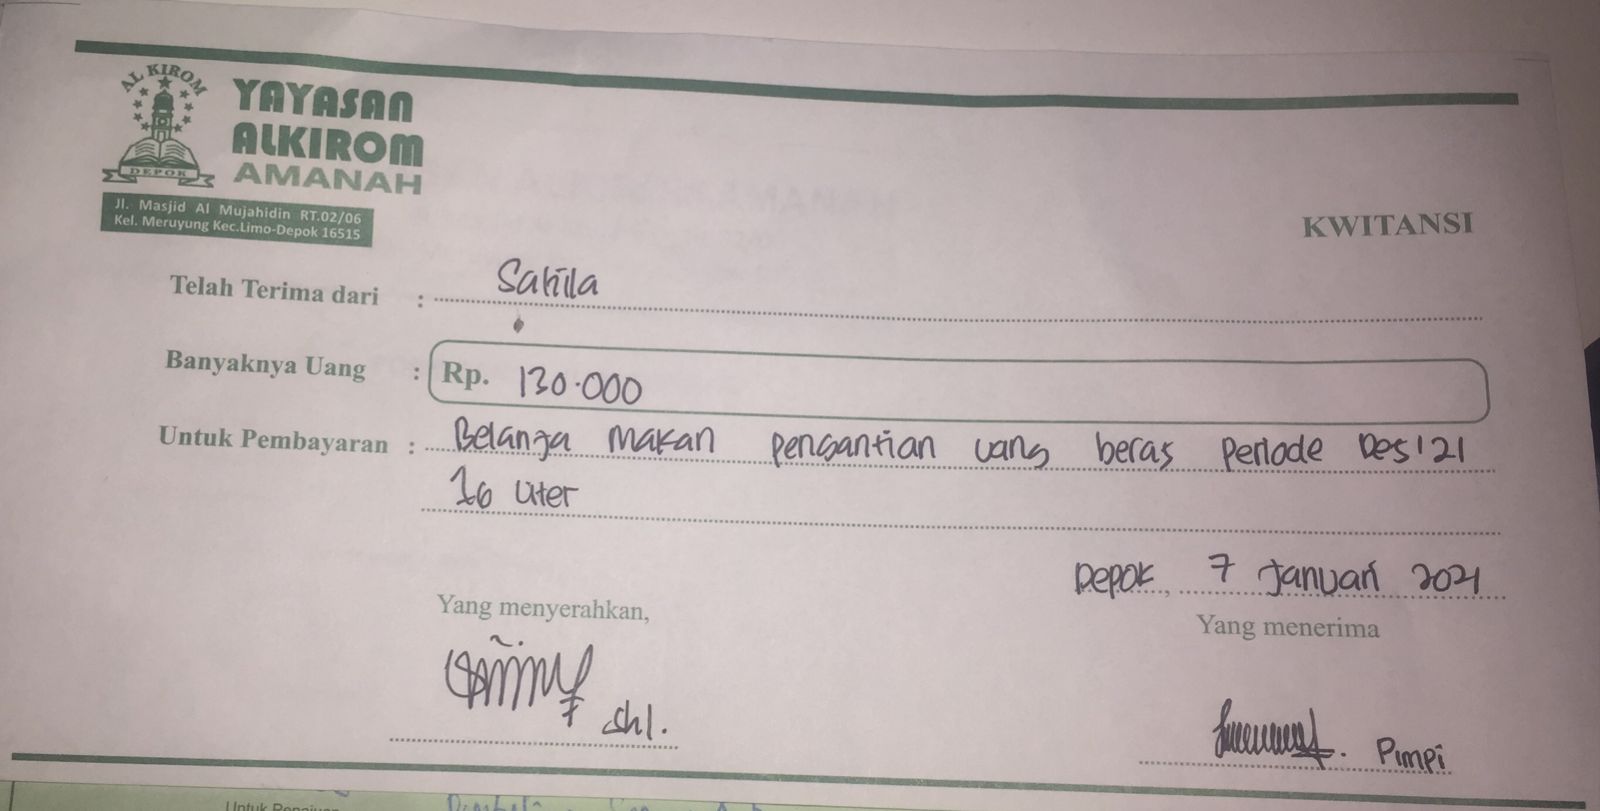 AL KIROM
DEPOK
YAYASAN
ALKIROM
AMANAH
Jl. Masjid Al Mujahidin RT.02/06
Kel. Meruyung Kec.Limo-Depok 16515
KWITANSI
Telah Terima dari : Sahila
Banyaknya Uang : Rp. 130.000
Untuk Pembayaran : Belanja makan pengantian uang beras periode Des'21
16 Liter
Depok, 7 Januari 2021
Yang menyerahkan,
Yang menerima
Shl.
Pimpi
Untuk